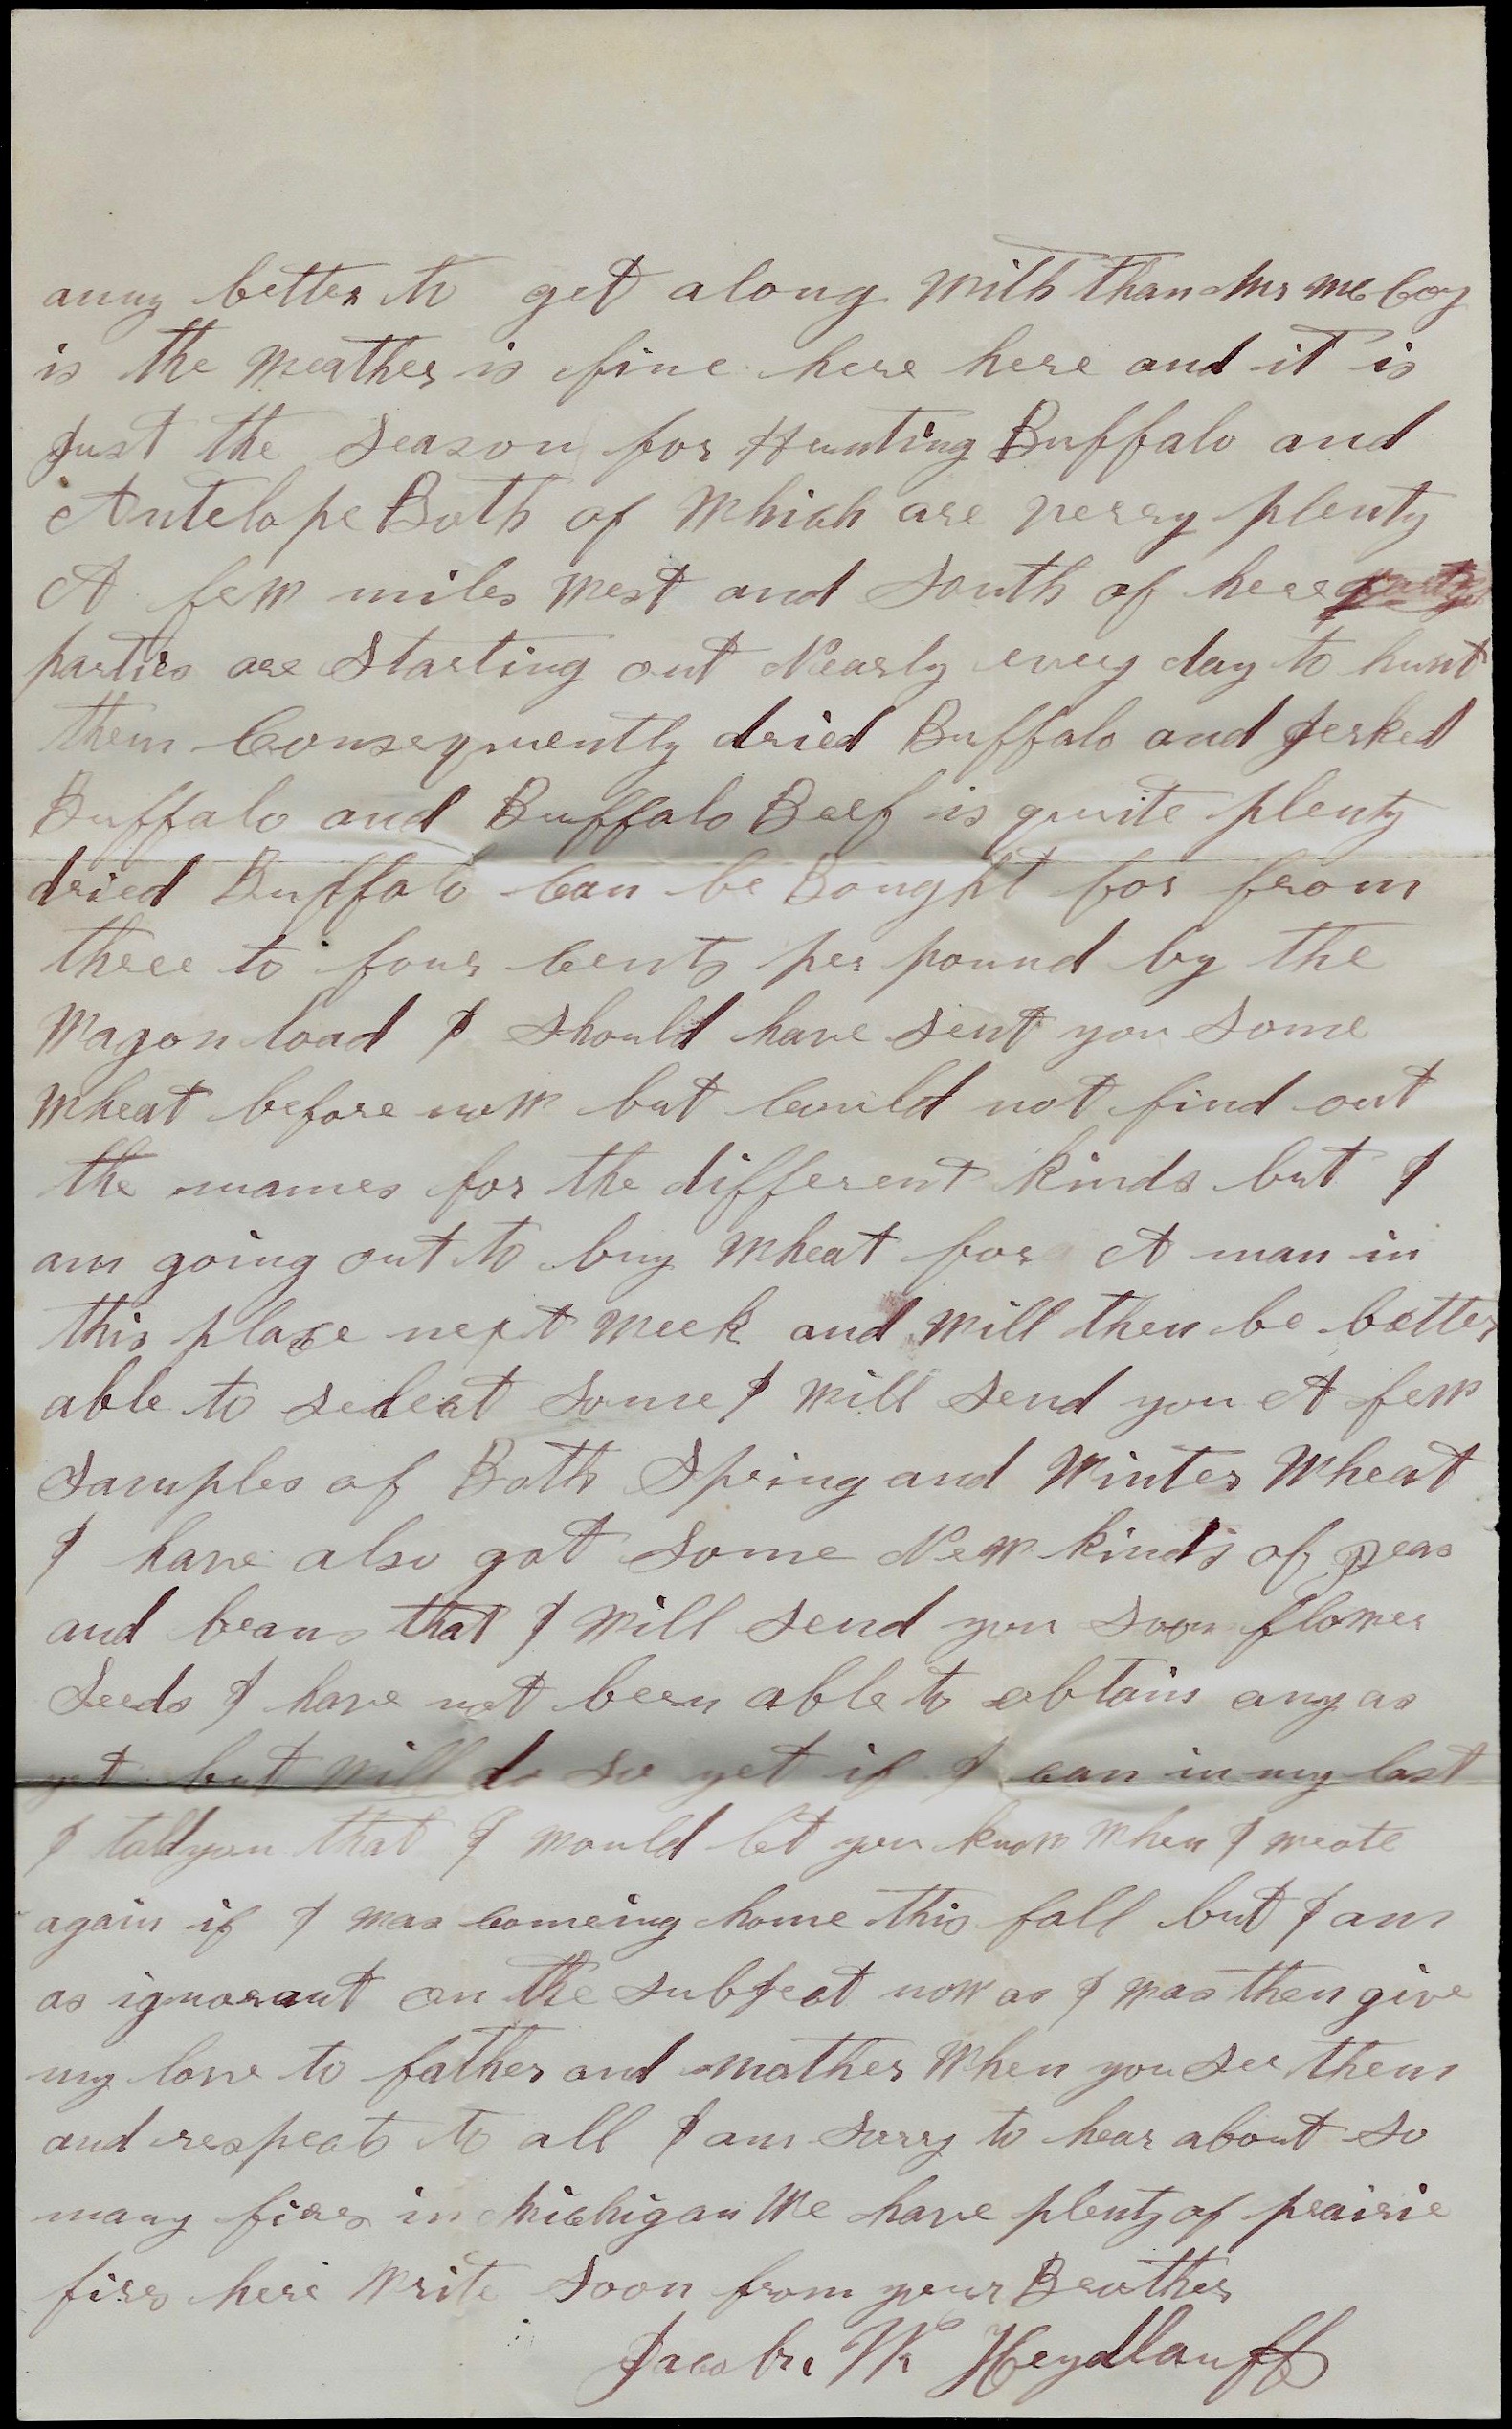 anny better to get along With than Mr Mc Coy
is the Weather is fine here here and it is
Just the Season for Hunting Buffalo and
Antelope Both of Which are verry plenty
A few miles West and South of here
parties are Starting out Nearly every day to hunt
them Consequently dried Buffalo and Jerked
Buffalo and Buffalo Beef is quite plenty
dried Buffalo Can be Bought for from
three to four Cents per pound by the
Wagon load I Should have Sent you Some
Wheat before now but Could not find out
the names for the different kinds but I
am going out to buy Wheat for A man in
this place next Week and Will then be better
able to select Some I Will Send you A few
Samples of Both Spring and Winter Wheat
I have also got Some New kinds of peas
and beans that I Will Send you Soon flower
Seeds I have not been able to obtain any as
yet but Will do So yet if I can in my last
I told you that I Would let you know When I wrote
again if I Was Comeing home this fall but I am
as ignorant on the SubJect now as I Was then give
my love to father and mother When you See them
and respects to all I am Sorry to hear about So
many fires in Michigan We have plenty of prairie
fires here Write Soon from your Brother
Jacob W Heydlauff